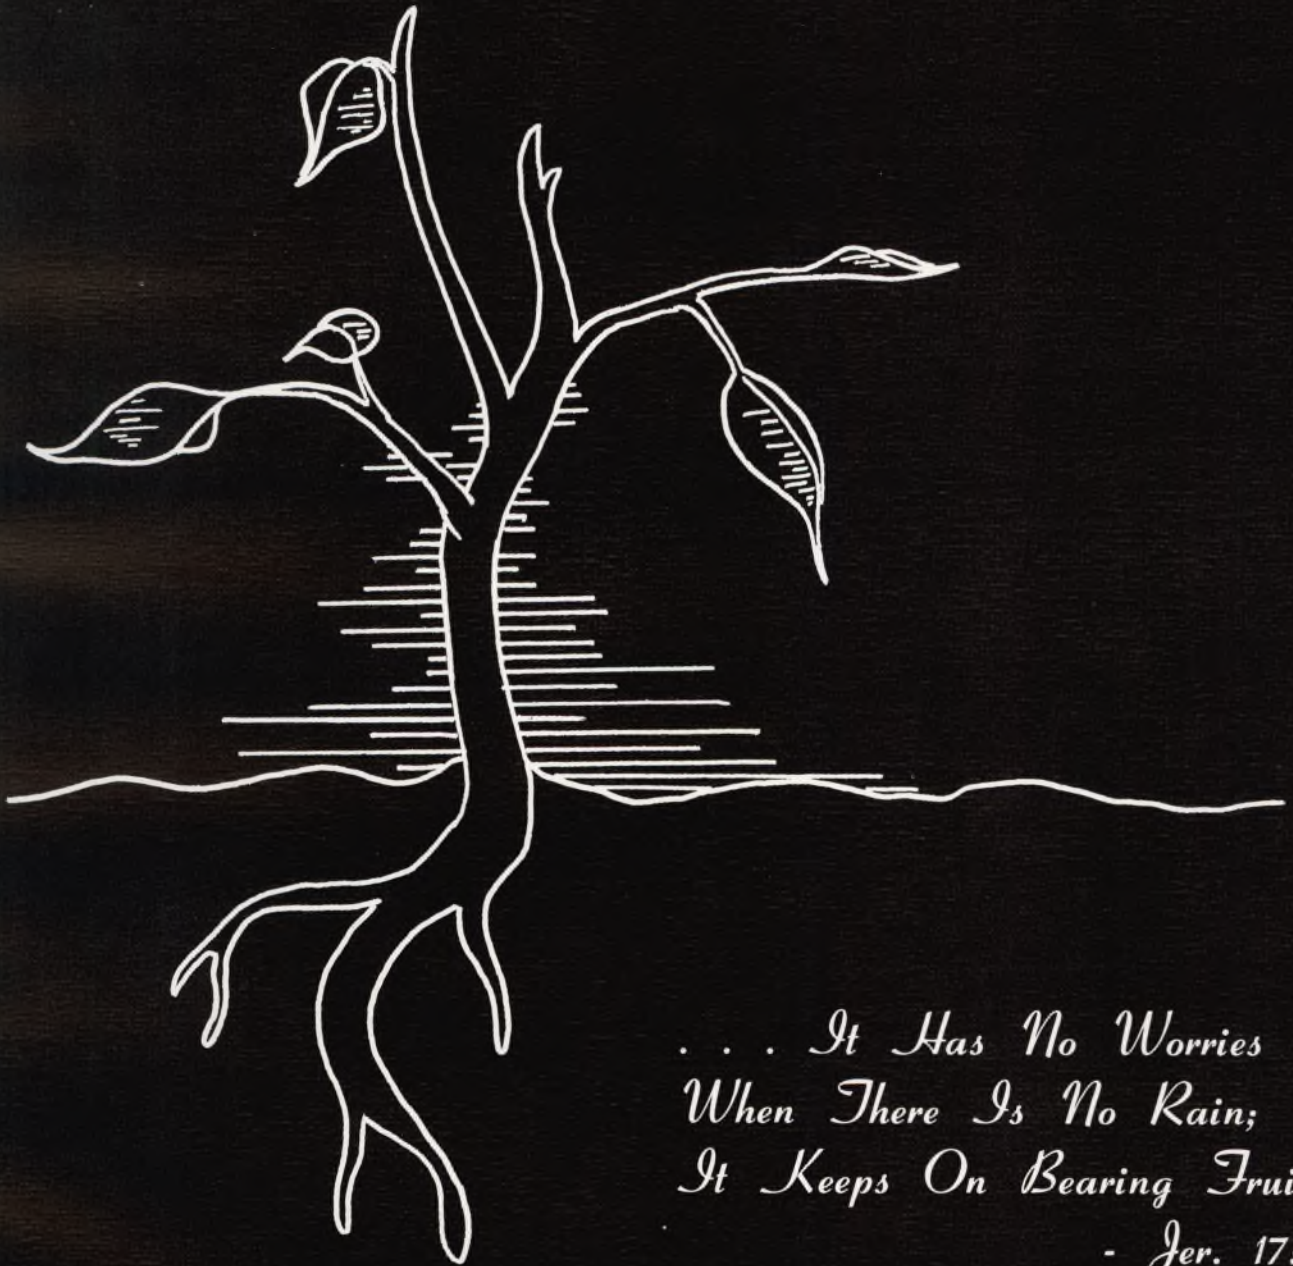 . . . It Has No Worries
When There Is No Rain;
It Keeps On Bearing Frui
- Jer. 17: